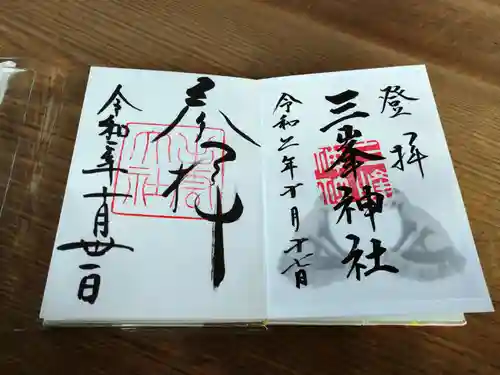 登拝
三峯神社
令和二年十月十七日
奉拝
令和二年十月丗一日